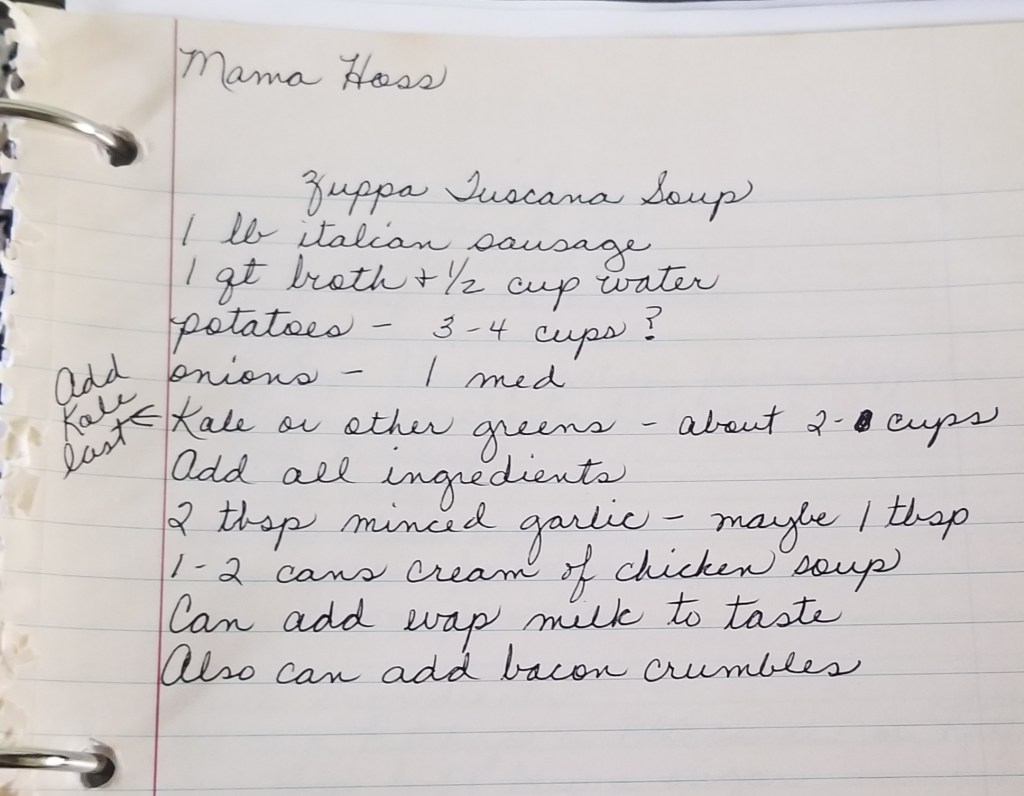 Mama Hoss
Zuppa Tuscana Soup
1 lb italian sausage
1 qt broth + 1/2 cup water
potatoes - 3-4 cups?
onions - 1 med
Add
Kale
last ←
Kale or other greens - about 2- cups
Add all ingredients
2 tbsp minced garlic - maybe 1 tbsp
1-2 cans cream of chicken soup
Can add evap milk to taste
Also can add bacon crumbles